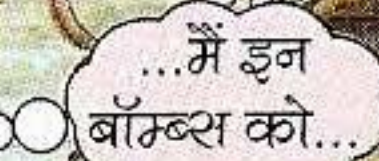 ...मैं इन
बॉम्ब्स को...